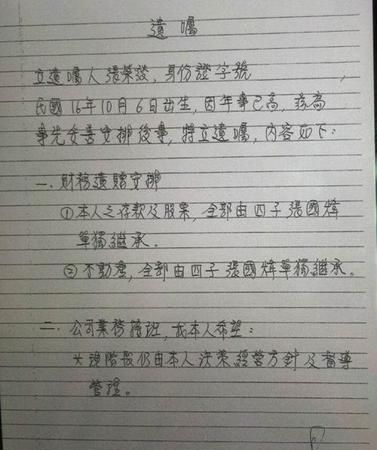 遺囑
立遺囑人張榮發,身份證字號
民國16年10月6日出生,因年事已高,該為
事先妥善安排後事,特立遺囑,內容如下:
一、財務遺贈安排
①本人之存款及股票,全部由四子張國煒
單獨繼承。
②不動產,全部由四子張國煒單獨繼承。
二、公司業務接班,我本人希望:
大現階段仍由本人決策經營方針及督導
管理。